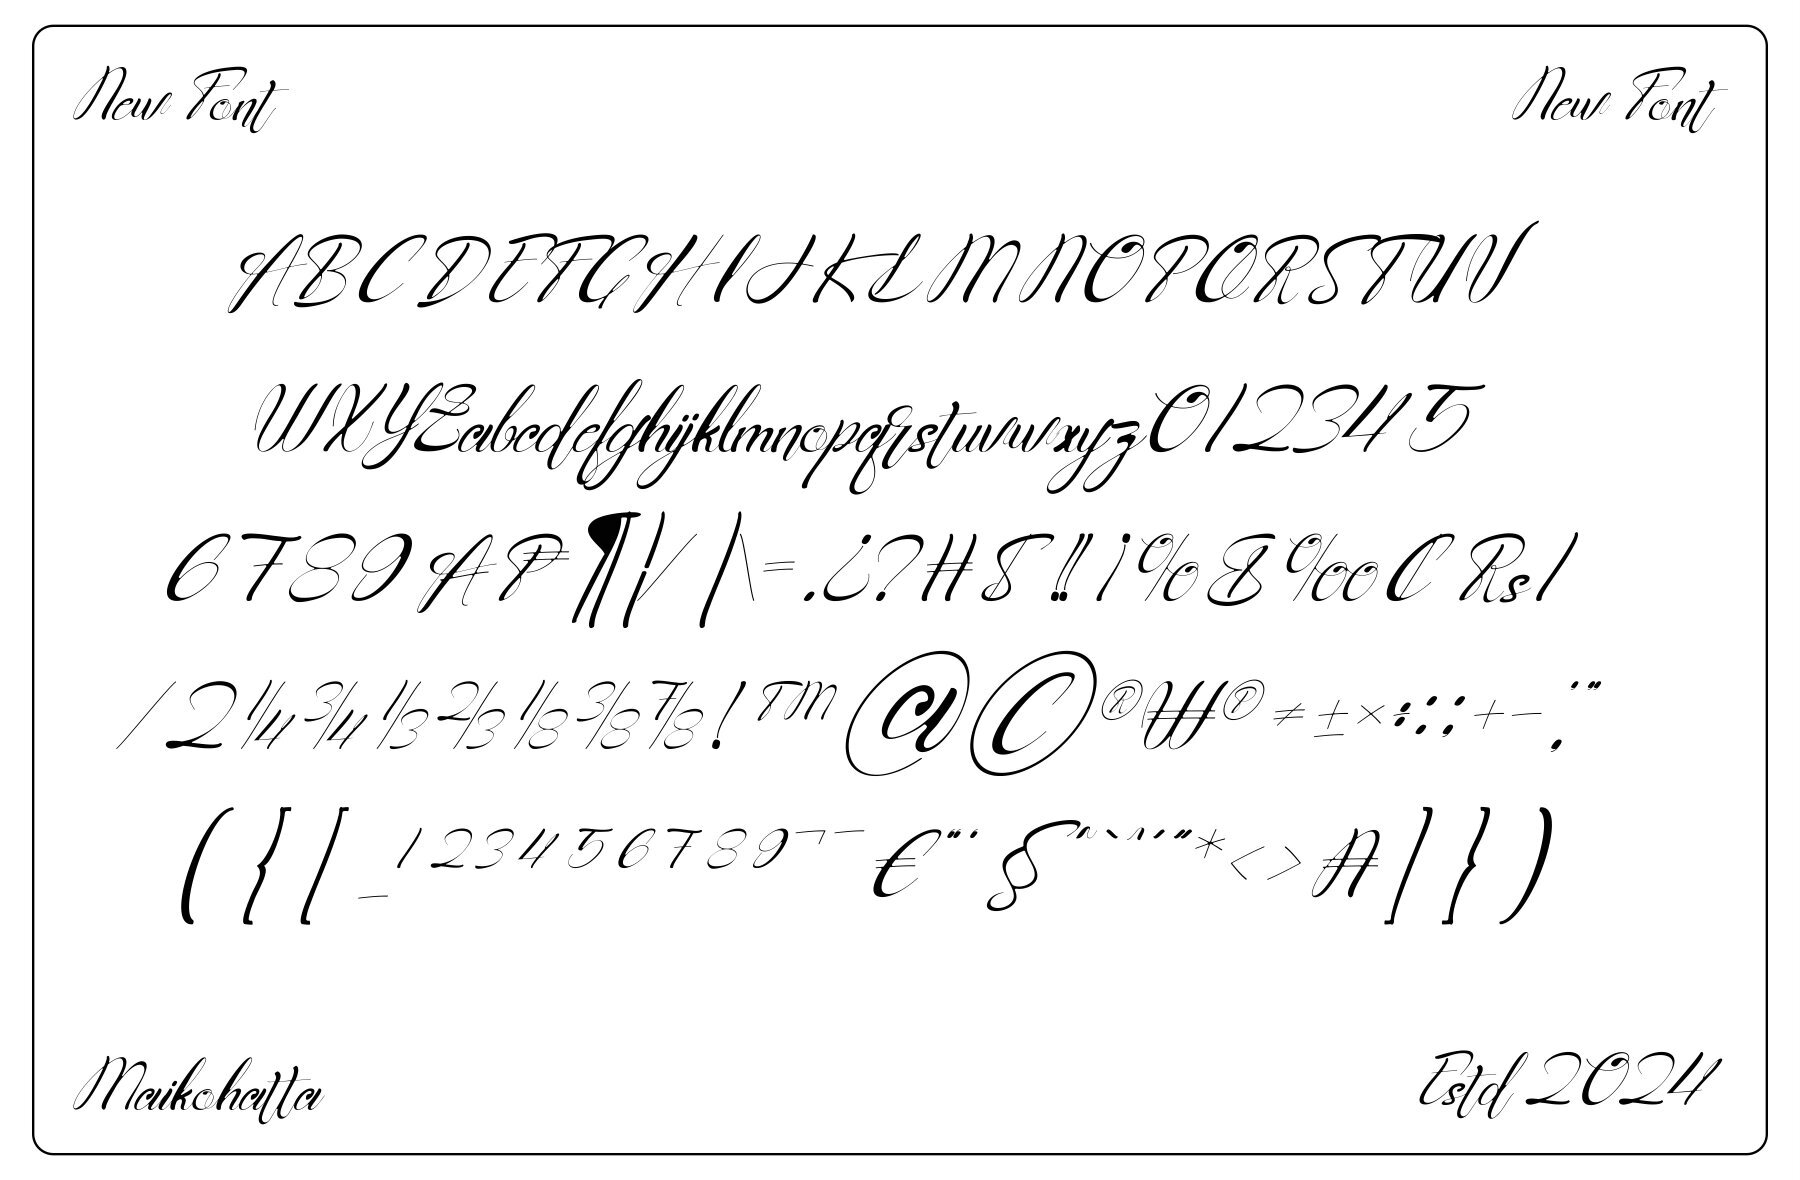 New Font
New Font
ABCDEFGHIJKLMNOPQRSTUV
WXYZabcdefghijklmnopqrstuvwxyz012345
6789A₱¶¦/|\=.¿?#$‼¡%&‰₡₨l
/2¼¾⅓⅔⅛⅜⅞!™@©®₩℗≠±×÷:;+-,'"
({[_¹²³⁴⁵⁶⁷⁸⁹¬¯€"'§^`´"*<>₳]})
Maikohatta
Estd 2024